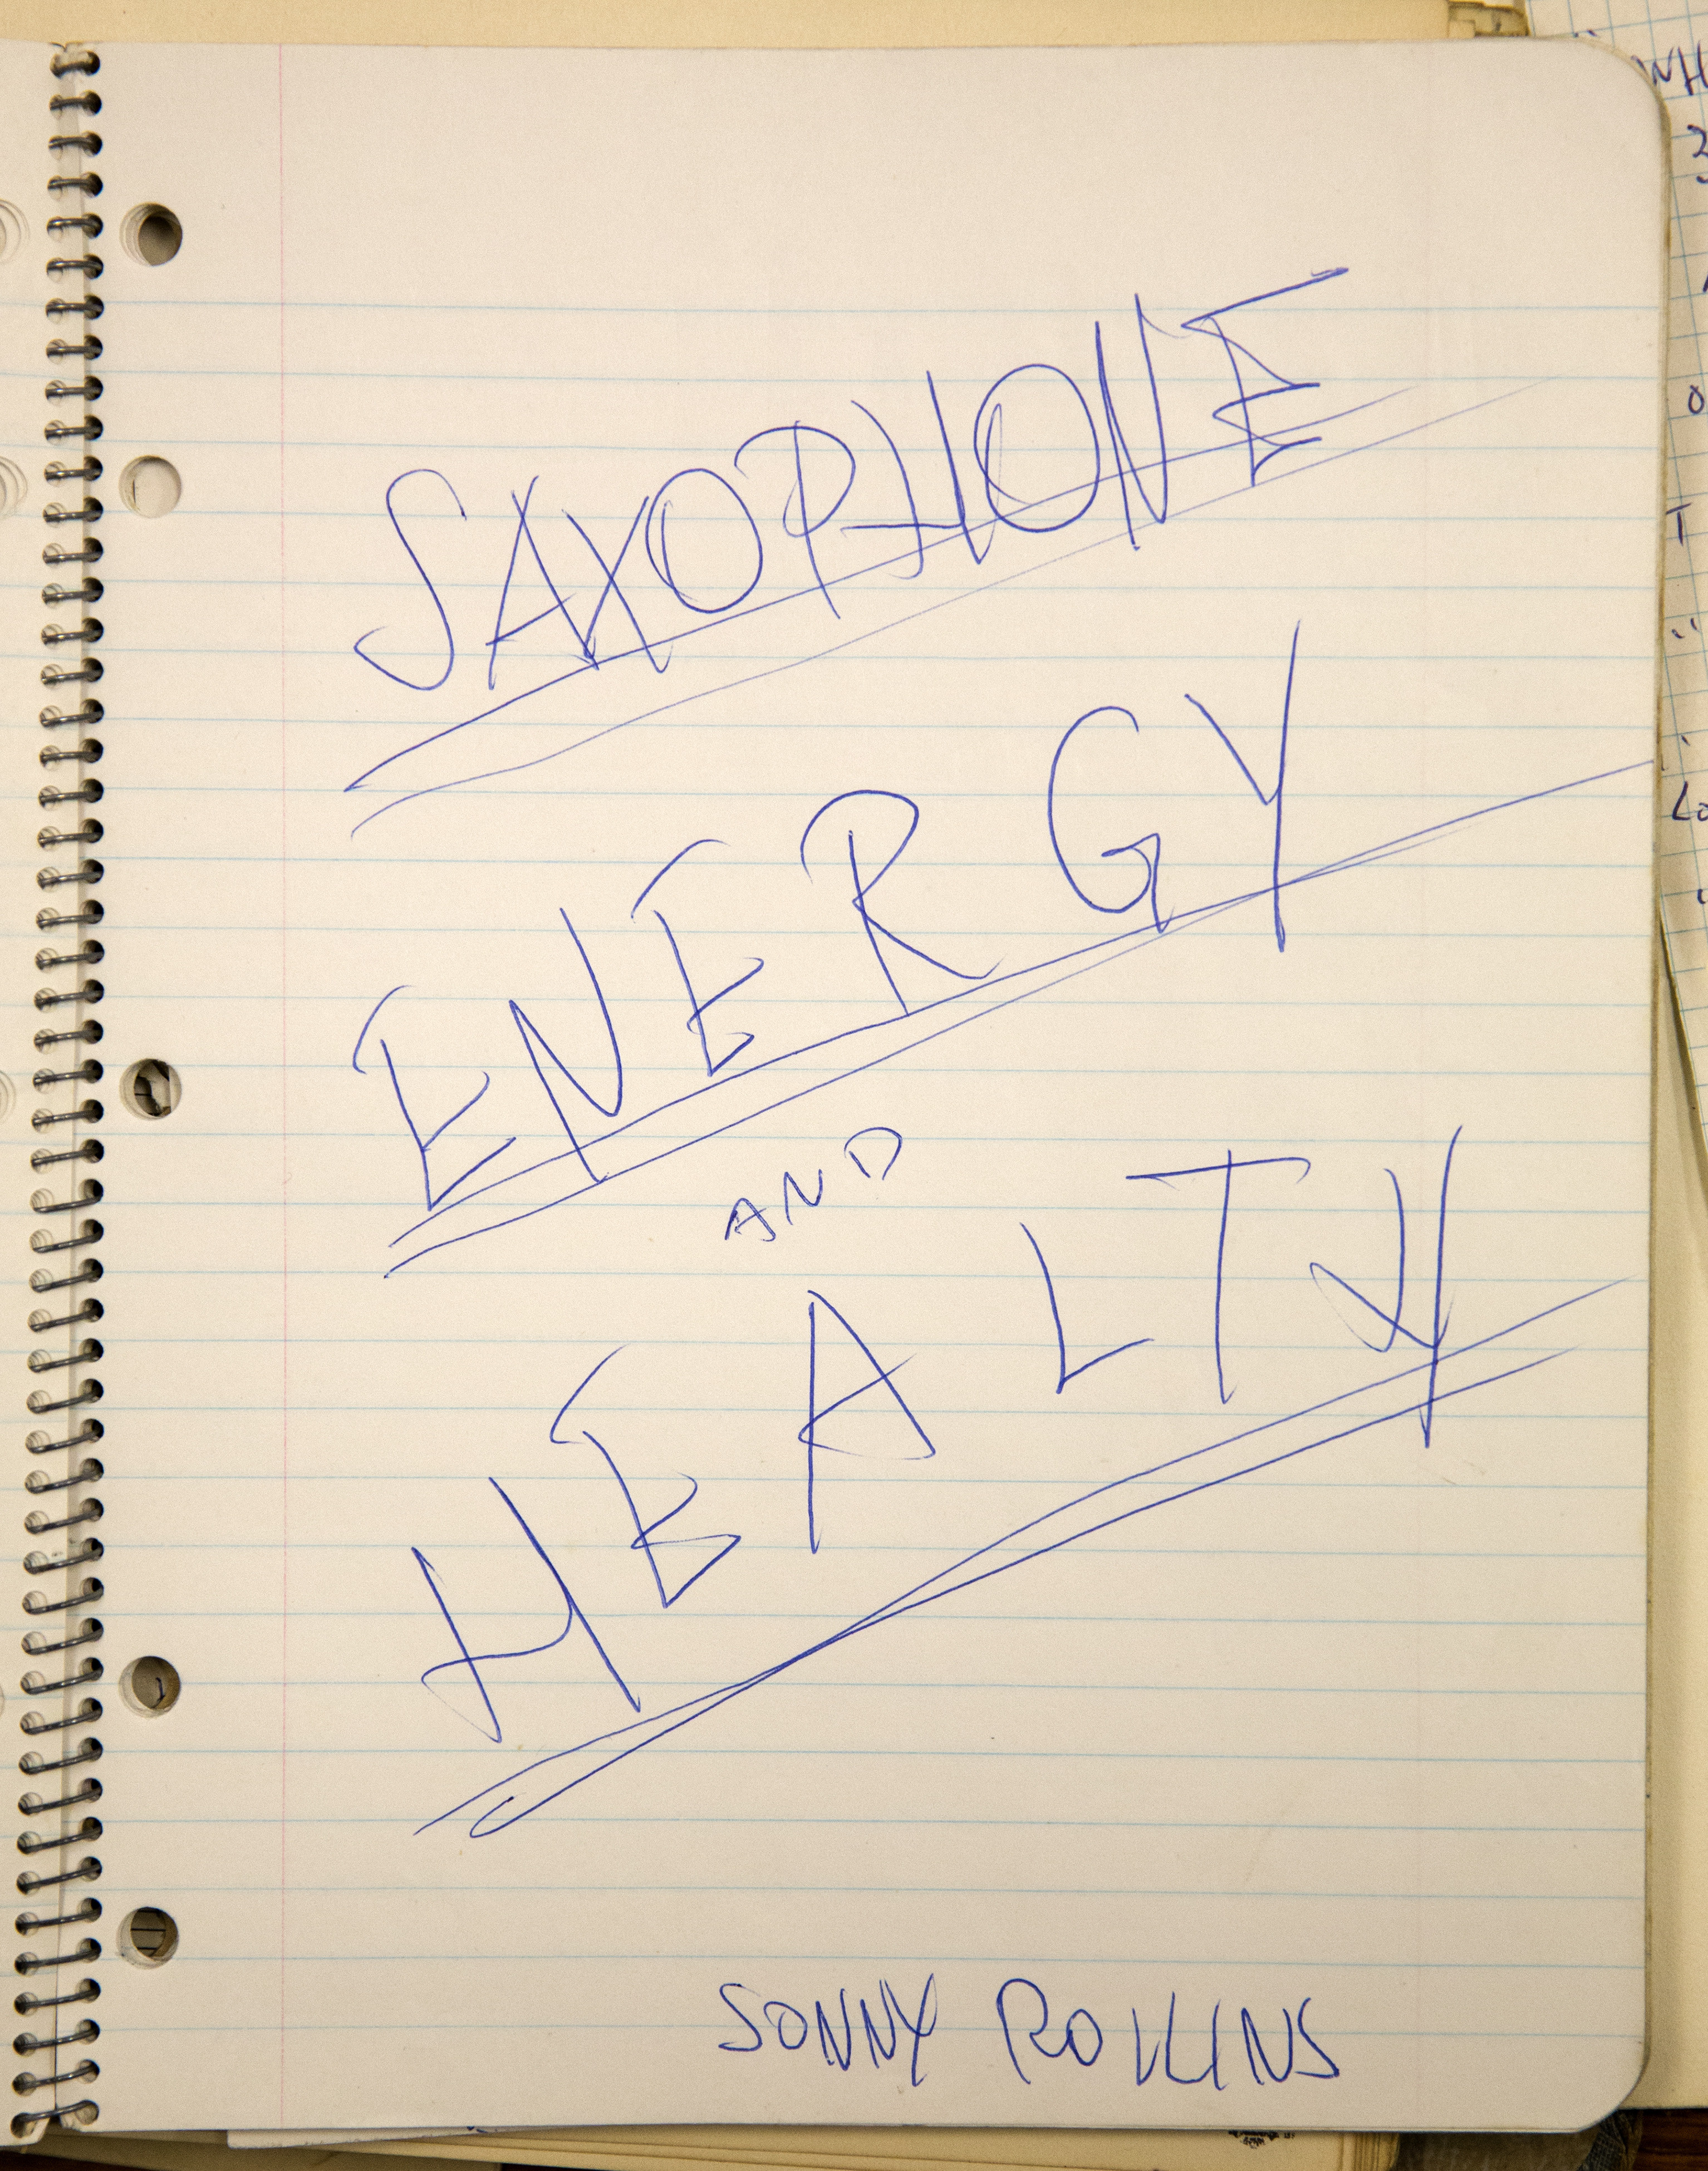 SAXOPHONE
ENERGY
AND
HEALTH
SONNY ROLLINS